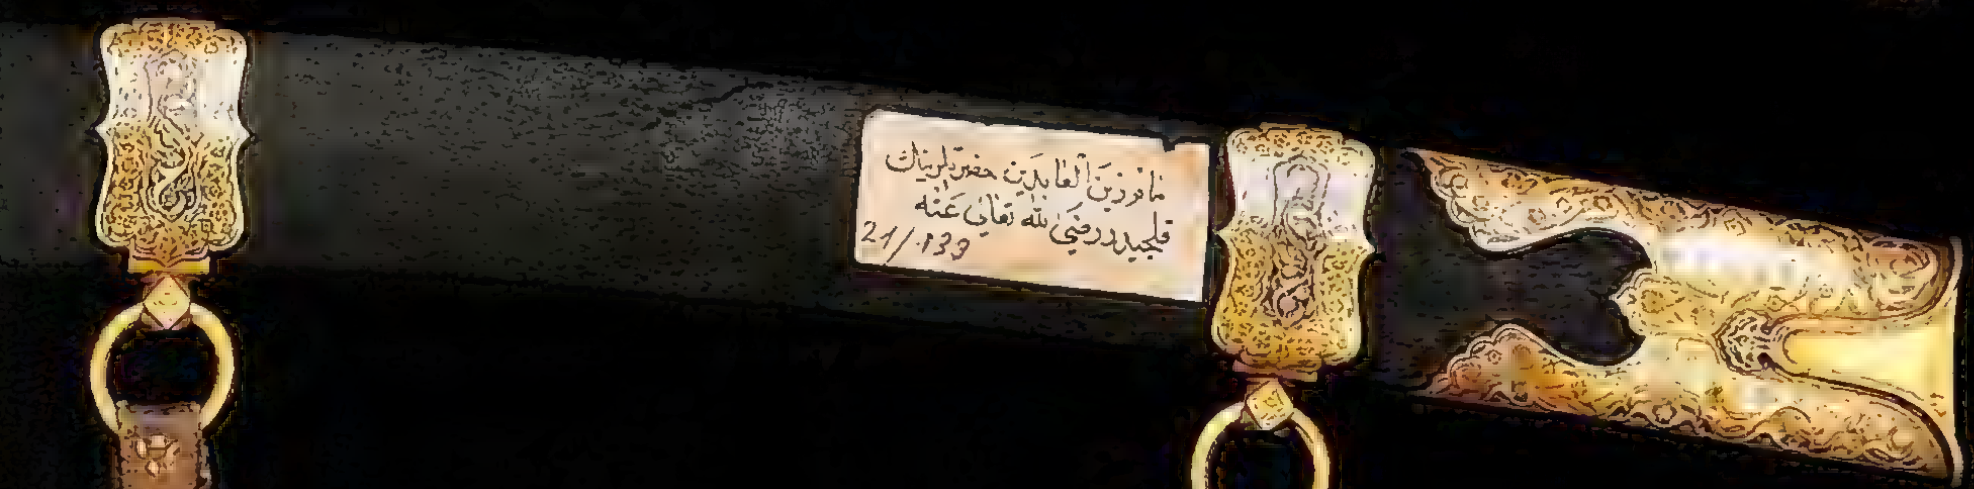 زين العابدين حضرتلرينك
قليجيدر رضي الله تعالى عنه
21/133